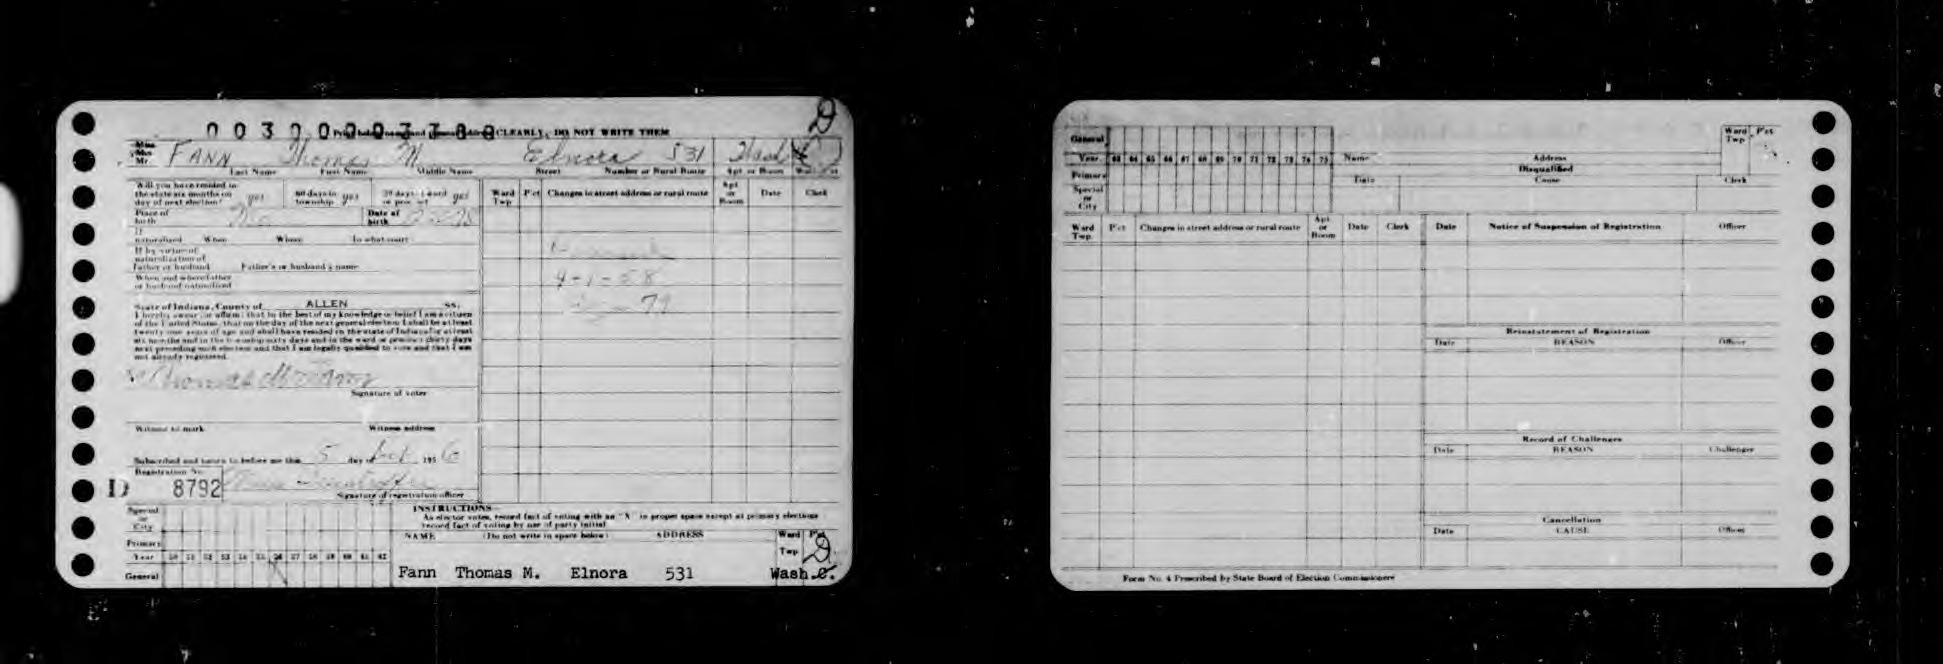 CLEARLY, DO NOT WRITE THEM
D
Miss
Mrs
Mr. FANN Thomas M Elnora 531 Wash
Last Name First Name Middle Name Street Number or Rural Route Apt or Room
Will you have resided in
the state six months on
day of next election? yes 60 days in
township yes 30 days yes
Place of
birth
Date of
birth
Ward
Twp
P'ct Changes in street address or rural route Apt
or
Room Date Clerk
If
naturalized When Where In what court
If by virtue of
naturalization of
Father or husband Father's or husband's name
When and where father
or husband naturalized
4-1-58
State of Indiana, County of ALLEN SS:
I hereby swear (or affirm) that to the best of my knowledge or belief I am a citizen
of the United States, that on the day of the next general election I shall be at least
twenty one years of age and shall have resided in the state of Indiana for at least
six months and in the township sixty days and in the ward or precinct thirty days
next preceding such election and that I am legally qualified to vote and that I am
not already registered.
Thomas M Fann
Signature of voter
Witness to mark Witness address
Subscribed and sworn to before me this 5 day of Oct 1956
Registration No.
D 8792
Signature of registration officer
INSTRUCTIONS
As elector votes, record fact of voting with an "X" in proper space except at primary elections
record fact of voting by use of party initial
Special
or
City
Primary
Year 50 51 52 53 54 55 56 57 58 59 60 61 62
General
NAME (Do not write in space below) ADDRESS Ward
Twp P'ct
D
Fann Thomas M. Elnora 531 Wash.C.
General
Year 63 64 65 66 67 68 69 70 71 72 73 74 75
Primary
Special
or
City
Name Address
Ward
Twp P'ct
Disqualified
Date Cause Clerk
Ward
Twp. P'ct Changes in street address or rural route Apt
or
Room Date Clerk
Date Notice of Suspension of Registration Officer
Reinstatement of Registration
Date REASON Officer
Record of Challenges
Date REASON Challenger
Cancellation
Date CAUSE Officer
Form No. 4 Prescribed by State Board of Election Commissioners